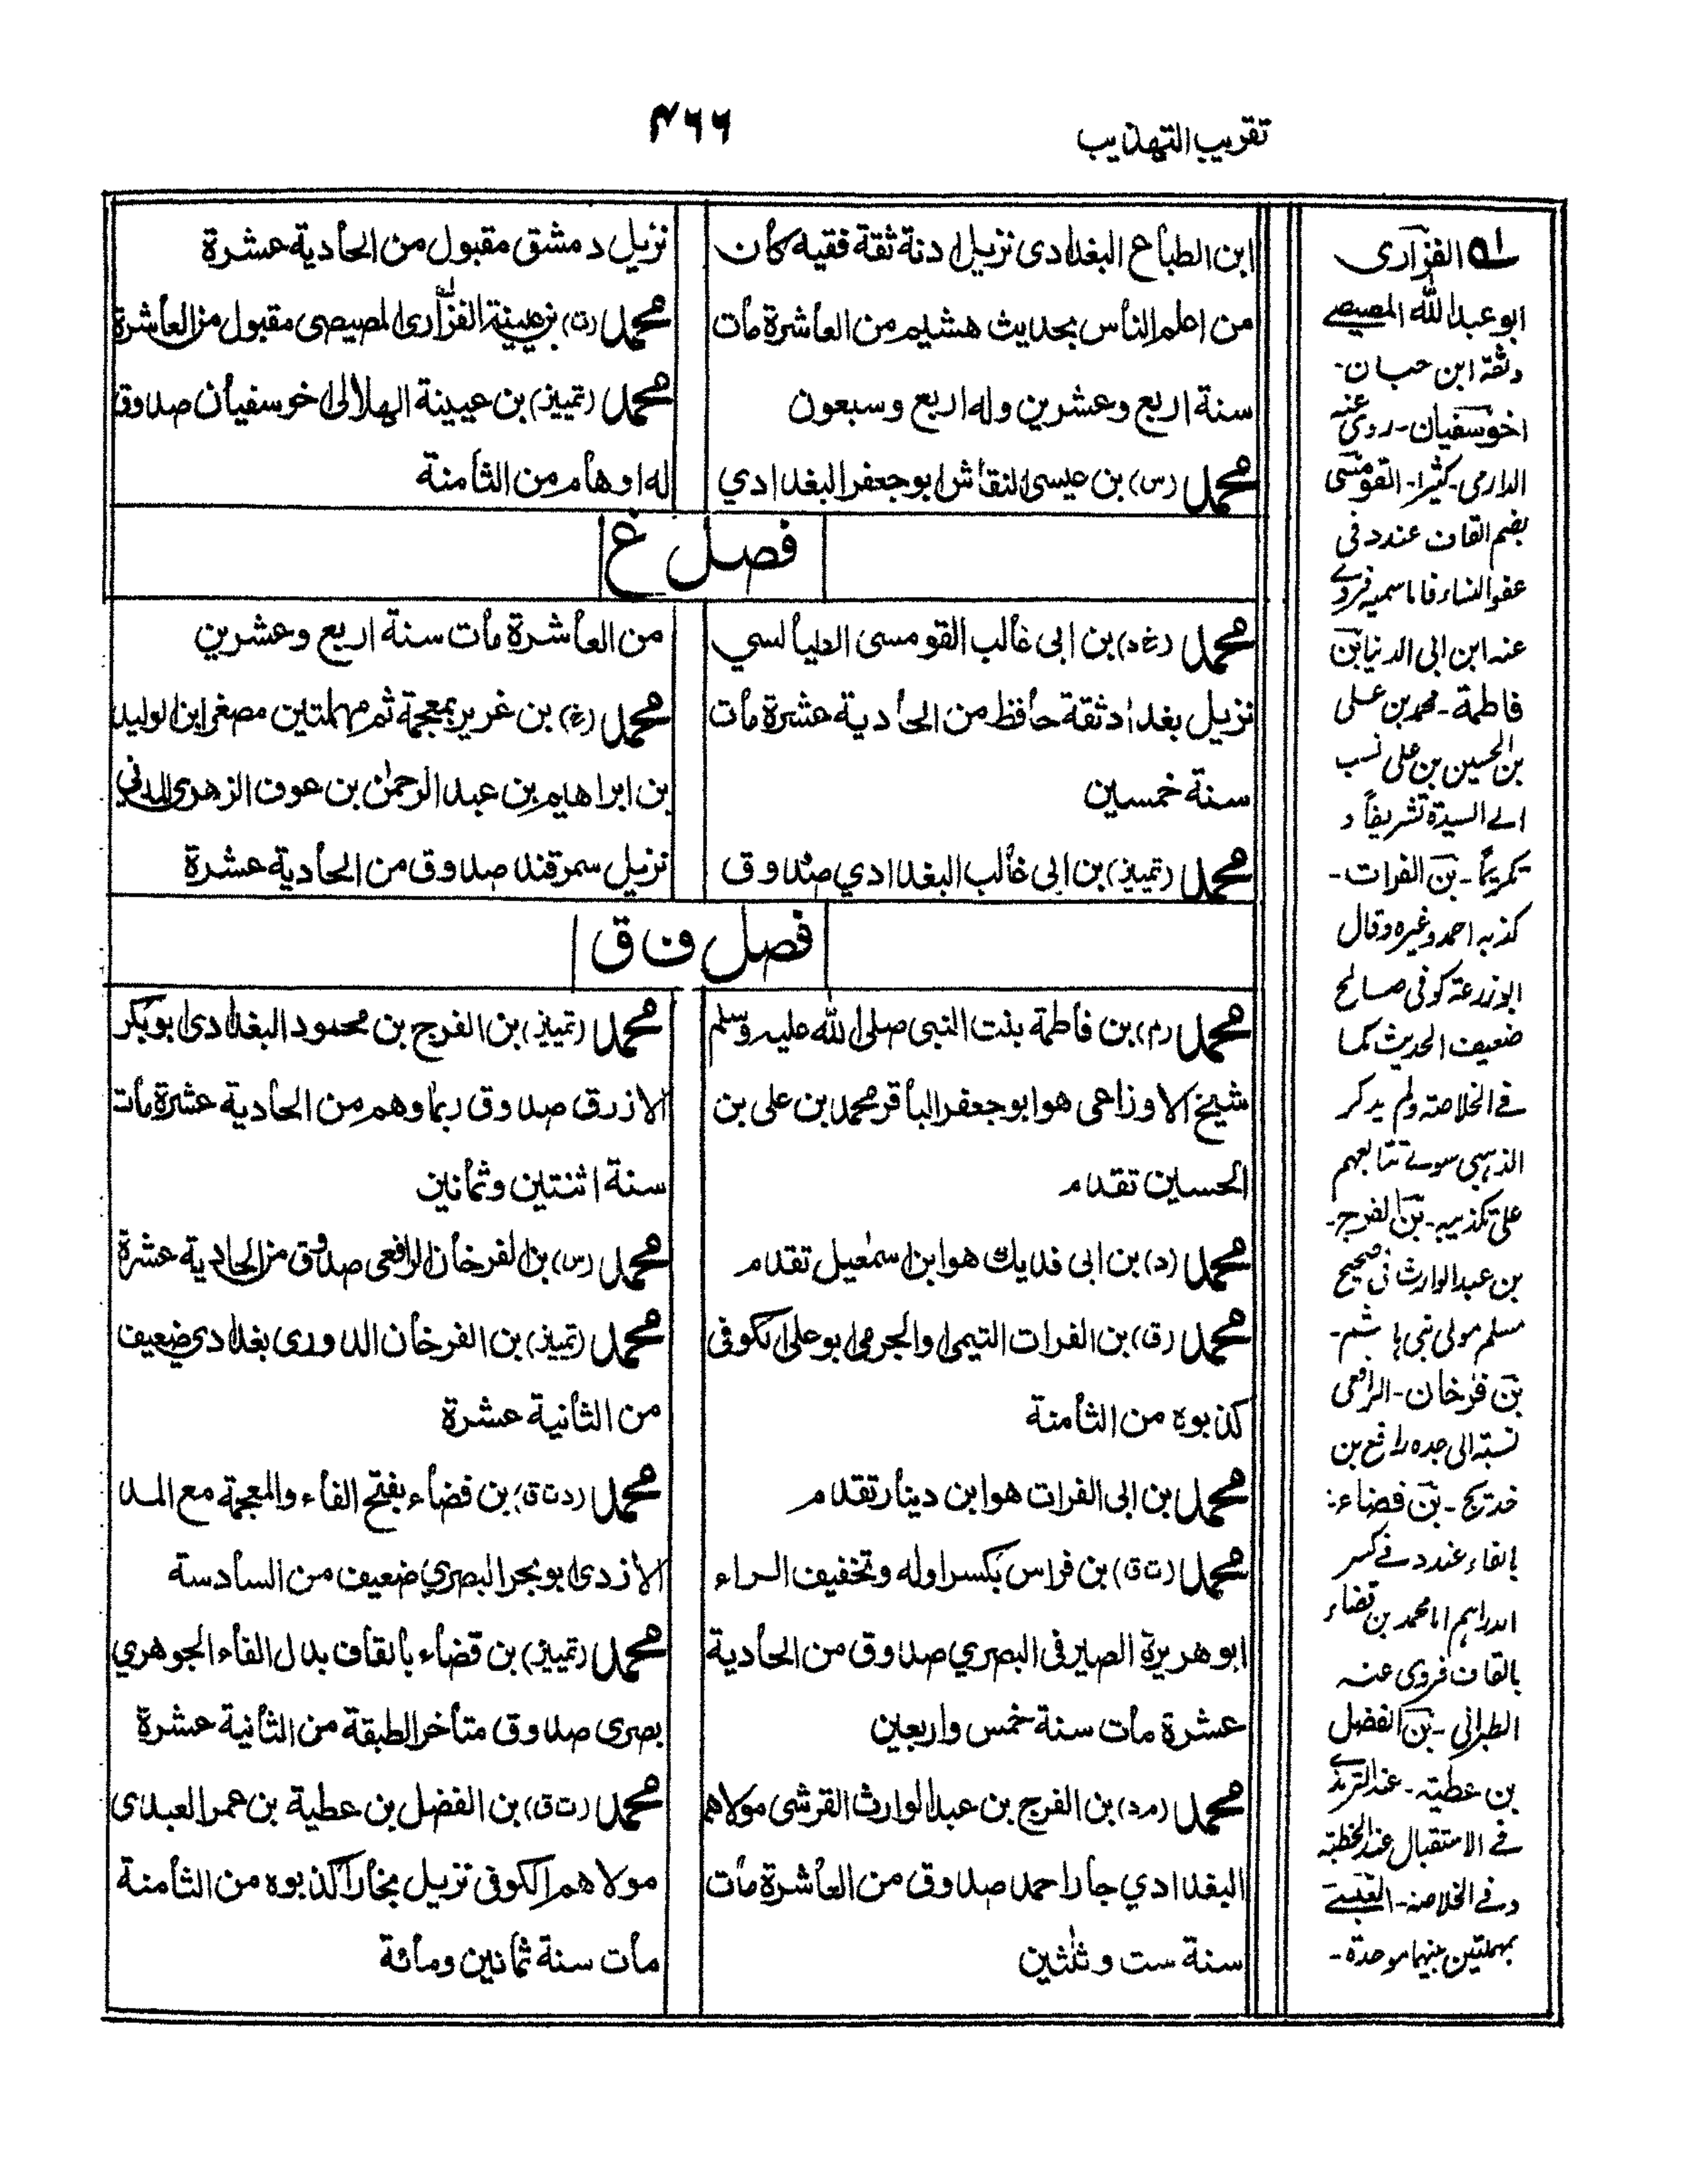 تقريب التهذيب
٤٦٦
ابن الطباع البغدادى نزيل اذنة ثقة فقيه كان
من اعلم الناس بحديث هشيم من العاشرة مات
سنة اربع وعشرين وله اربع وسبعون
محمد (س) بن عيسى النقاش ابو جعفر البغدادي
نزيل دمشق مقبول من الحادية عشرة
محمد (ت) بن عيينة الفزارى المصيصى مقبول من العاشرة
محمد (تمييز) بن عيينة الهلالى اخو سفيان صدوق
له اوهام من الثامنة
فصل غ
محمد (غ د) بن ابى غالب القومسى الطيالسي
نزيل بغداد ثقة حافظ من الحادية عشرة مات
سنة خمسين
محمد (تمييز) بن ابى غالب البغدادي صدوق
من العاشرة مات سنة اربع وعشرين
محمد (غ) بن غرير بمعجمة ثم مهملتين مصغر ابن الوليد
بن ابراهيم بن عبد الرحمٰن بن عوف الزهرى المدني
نزيل سمرقند صدوق من الحادية عشرة
فصل ف ق
محمد (م) بن فاطمة بنت النبى صلى الله عليه وسلم
شيخ الاوزاعى هو ابو جعفر الباقر محمد بن على بن
الحسين تقدم
محمد (د) بن ابى فديك هو ابن اسمٰعيل تقدم
محمد (ق) بن الفرات التيمى او الجرمى ابو على الكوفى
كذبوه من الثامنة
محمد بن ابى الفرات هو ابن دينار تقدم
محمد (ت ق) بن فراس بكسر اوله وتخفيف الراء
ابو هريرة الصيرفى البصري صدوق من الحادية
عشرة مات سنة خمس واربعين
محمد (مد) بن الفرج بن عبد الوارث القرشى مولاهم
البغدادي جار احمد صدوق من العاشرة مات
سنة ست وثلٰثين
محمد (تمييز) بن الفرج بن محمود البغدادى ابو بكر
الازرق صدوق ربما وهم من الحادية عشرة مات
سنة اثنتين وثمانين
محمد (س) بن الفرخان الرافعى صدوق من الحادية عشرة
محمد (تمييز) بن الفرخان الدورى بغدادي ضعيف
من الثانية عشرة
محمد (د ت ق) بن فضاء بفتح الفاء والمعجمة مع المد
الازدى ابو بحر البصري ضعيف من السادسة
محمد (تمييز) بن قضاء بالقاف بدل الفاء الجوهري
بصرى صدوق متأخر الطبقة من الثانية عشرة
محمد (ت ق) بن الفضل بن عطية بن عمر العبدى
مولاهم الكوفى نزيل بخارا كذبوه من الثامنة
مات سنة ثمانين ومائة
الفزارى
ابو عبد الله المصيصے
وثقه ابن حبان-
اخو سفيان- روى عنه
الدارمى- كثيرا- القومسى
بضم القاف عند د فى
عفو النساء فاما سميه فروے
عنه ابن ابى الدنيا بن
فاطمة- محمد بن على
بن الحسين بن على نسب
الے السيدة تشريفاً و
تكريماً- بن الفرات-
كذبه احمد وغيره وقال
ابو زرعة كوفى صالح
ضعيف الحديث كما
فے الخلاصة ولم يذكر
الذهبى سوے تتابعهم
على تكذيبه- بن الفرج-
بن عبد الوارث فى صحيح
مسلم مولى بنى هاشم-
بن فرخان- الرافعى
نسبة الى جده رافع بن
خديج- بن فضاء-
بالفاء عند د فے كسر
الدراهم اما محمد بن قضاء
بالقاف فروى عنه
الطبرانى- بن الفضل
بن عطية- عند الترمذے
فے الاستقبال عند الخطبة
وفے الخلاصة- العبسے
بمهملتين بينهما موحدة-